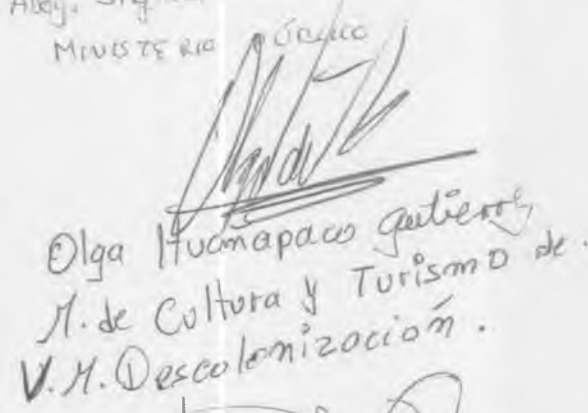 Abog.
MINISTERIO PÚBLICO
Olga Huanapaco Gutierrez
M. de Cultura y Turismo de.
V.M. Descolonización.